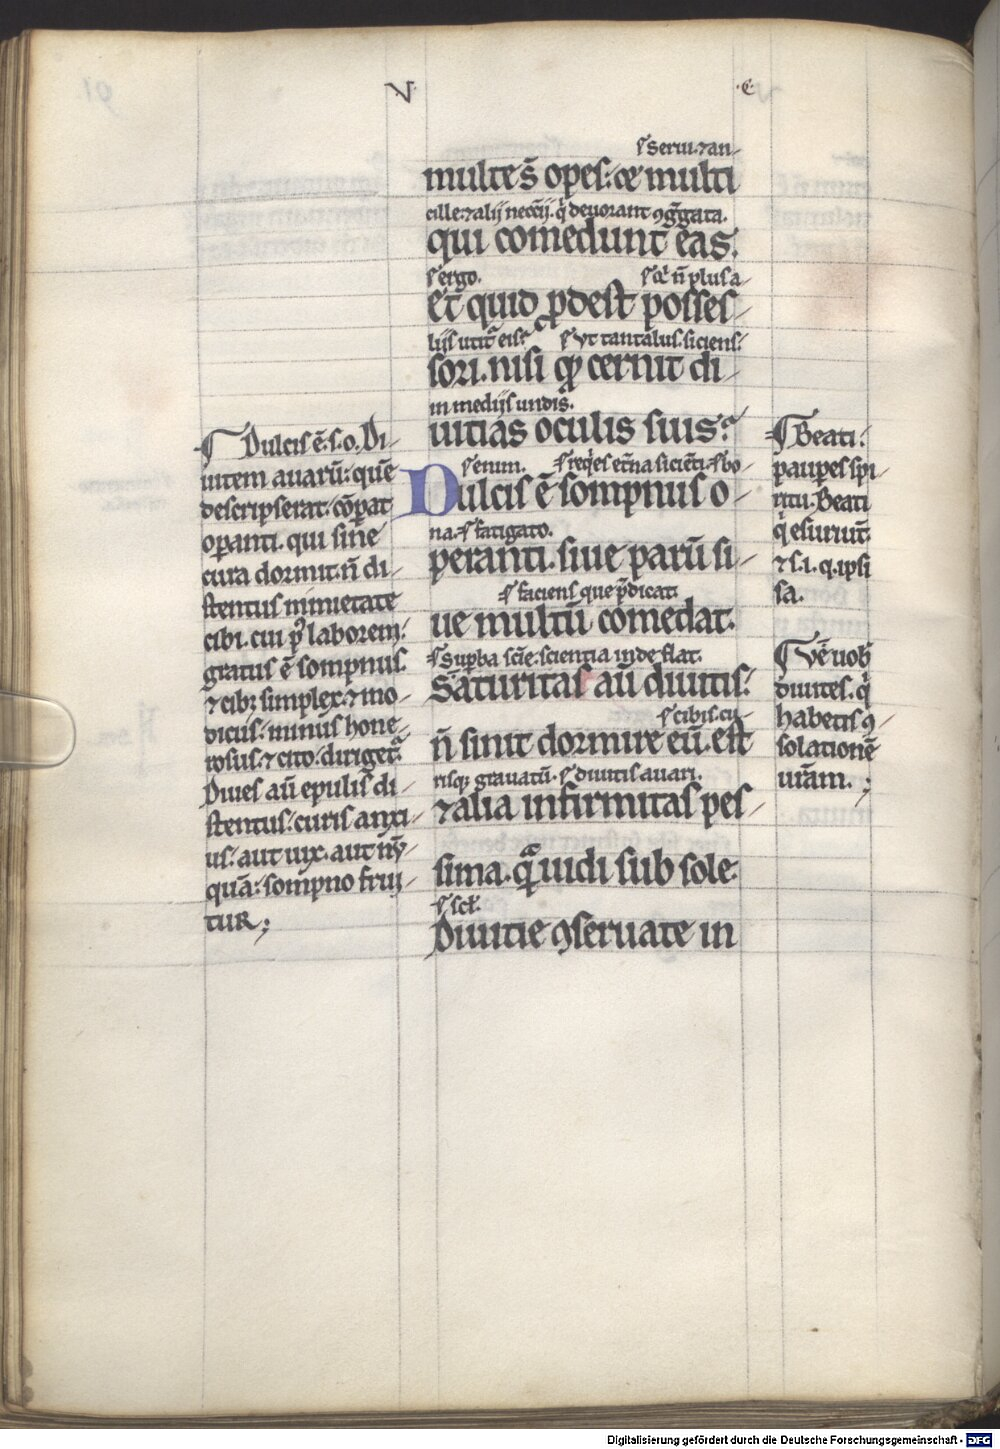 V.
.C.
seruu. ⁊ an-
multe sͭ opes: ⁊e multi
cille. ⁊ alij necc̄ij. q̇ deuorant ꝯgͣgata.
qui comedunt eas.
ergo.
q̇ n̄ plus a-
et quid ꝓdest posses-
lijs utit᷑ eis.
vt tantalus. siciens.
sori. nisi qꝫ cernit di-
in medijs undis.
uitias oculis suis?
enim.
req̇es et̄na sicienti. bo-
Dulcis ē sompnus o-
na.
fatigato.
peranti. siue parū si-
faciens que p̄dicat.
ue multū comedat.
Suꝑba scīe. scientia inde flat.
Saturitas aū diuitis:
cibis. cu-
n̄ sinit dormire eū. est
risqꝫ grauatū.
diuitis auari.
⁊ alia infirmitas pes-
sima. quā uidi sub sole.
scł.
Diuitie ꝯseruate in
¶ Dulcis ē. s. o. Di-
uitem auarū: quē
descripserat: cōꝑat
oꝑanti. qui sine
cura dormit. n̄ di-
stentus nimietate
cibi. cui ꝑ laborem:
gratus ē sompnus.
⁊ cibꝫ simplex. ⁊ mo-
dicus: minus hone-
rosus. ⁊ cito: dirigetᷓ.
Diues aū epulis di-
stentus: curis anxi-
us: aut uix. aut nū-
quā: sompno frui-
tur;
¶ Beati.
pauꝑes spi-
ritu. Beati
q̇ esuriūt.
⁊ s. i. q. ipsi
sa.
¶ Vē uob̄
diuites. q̇
habetis ꝯ-
solationē
urām. ;
Digitalisierung gefördert durch die Deutsche Forschungsgemeinschaft - DFG